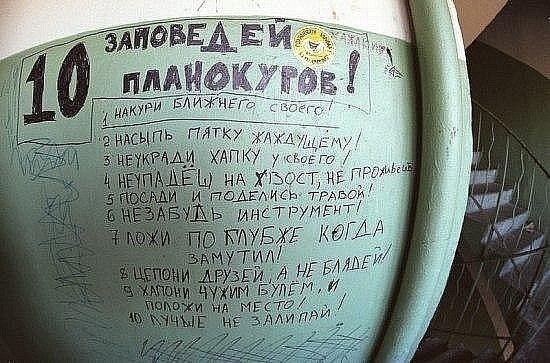 10 ЗАПОВЕДЕЙ
ПЛАНОКУРОВ!
1 НАКУРИ БЛИЖНЕГО СВОЕГО!
2 НАСЫПЬ ПЯТКУ ЖАЖДУЩЕМУ!
3 НЕУКРАДИ ХАПКУ У СВОЕГО!
4 НЕУПАДЁШ НА ХВОСТ, НЕ ПРОЖИВЁШ
5 ПОСАДИ И ПОДЕЛИСЬ ТРАВОЙ!
6 НЕЗАБУДЬ ИНСТРУМЕНТ!
7 ЛОЖИ ПО ГЛУБЖЕ КОГДА
ЗАМУТИЛ!
8 ЦЕПОНИ ДРУЗЕЙ, А НЕ БЛЯДЕЙ!
9 ХАПОНИ ЧУЖИМ БУЛЕМ, И
ПОЛОЖИ НА МЕСТО!
10 ЛУЧШЕ НЕ ЗАЛИПАЙ!